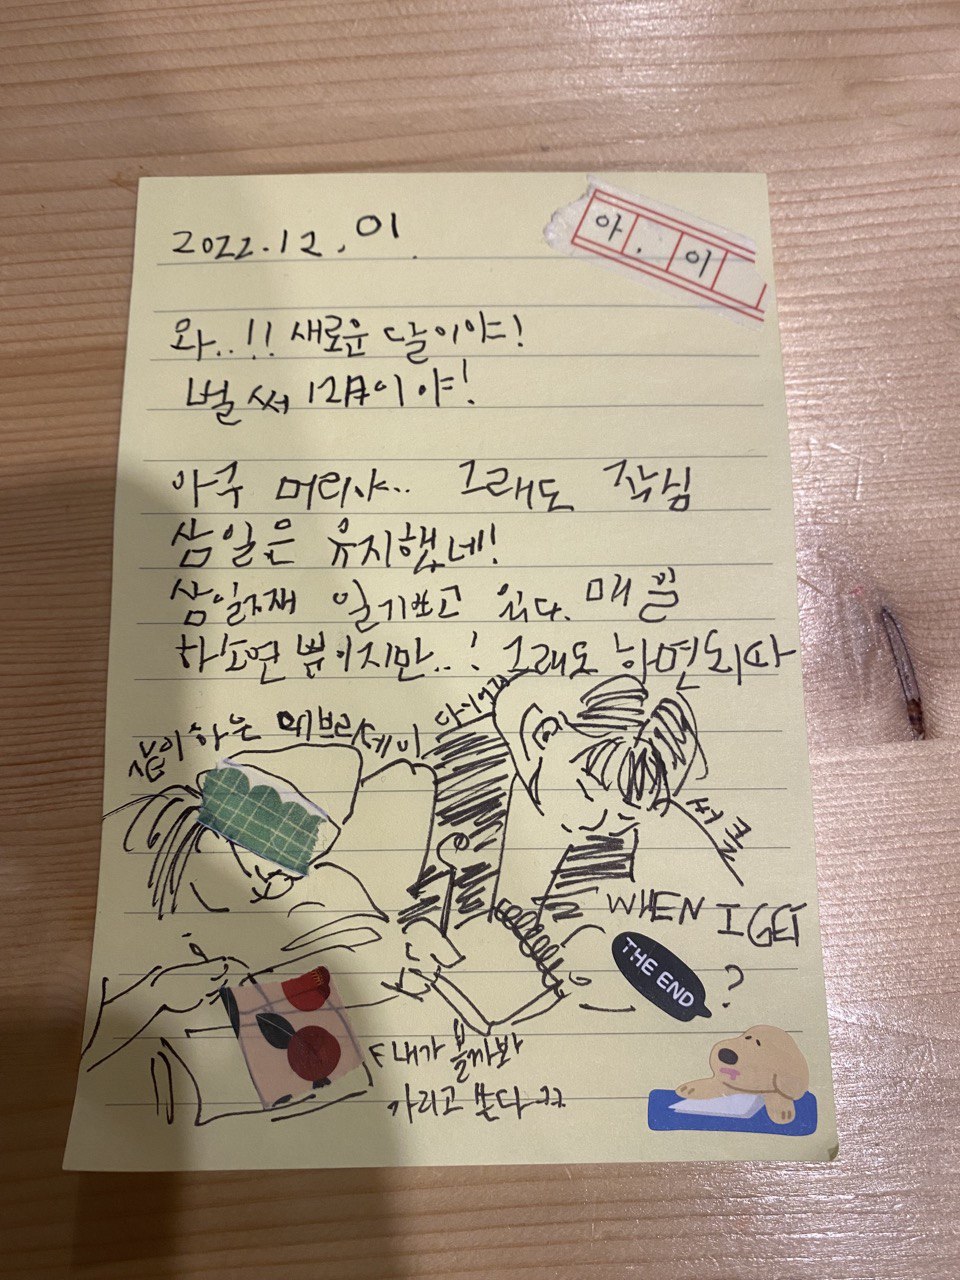 2022.12.01.
아.이
와..!! 새로운 달이야!
벌써 12月이야!
아구 머리야.. 그래도 작심
삼일은 유지했네!
삼일째 일기쓰고 있다. 매일
하소연 뿐이지만..! 그래도 하면되따
집이 하은
다이어리
서른
WHEN I GET
THE END
?
내가 볼까봐
가리고 쓴다 ㅋㅋ